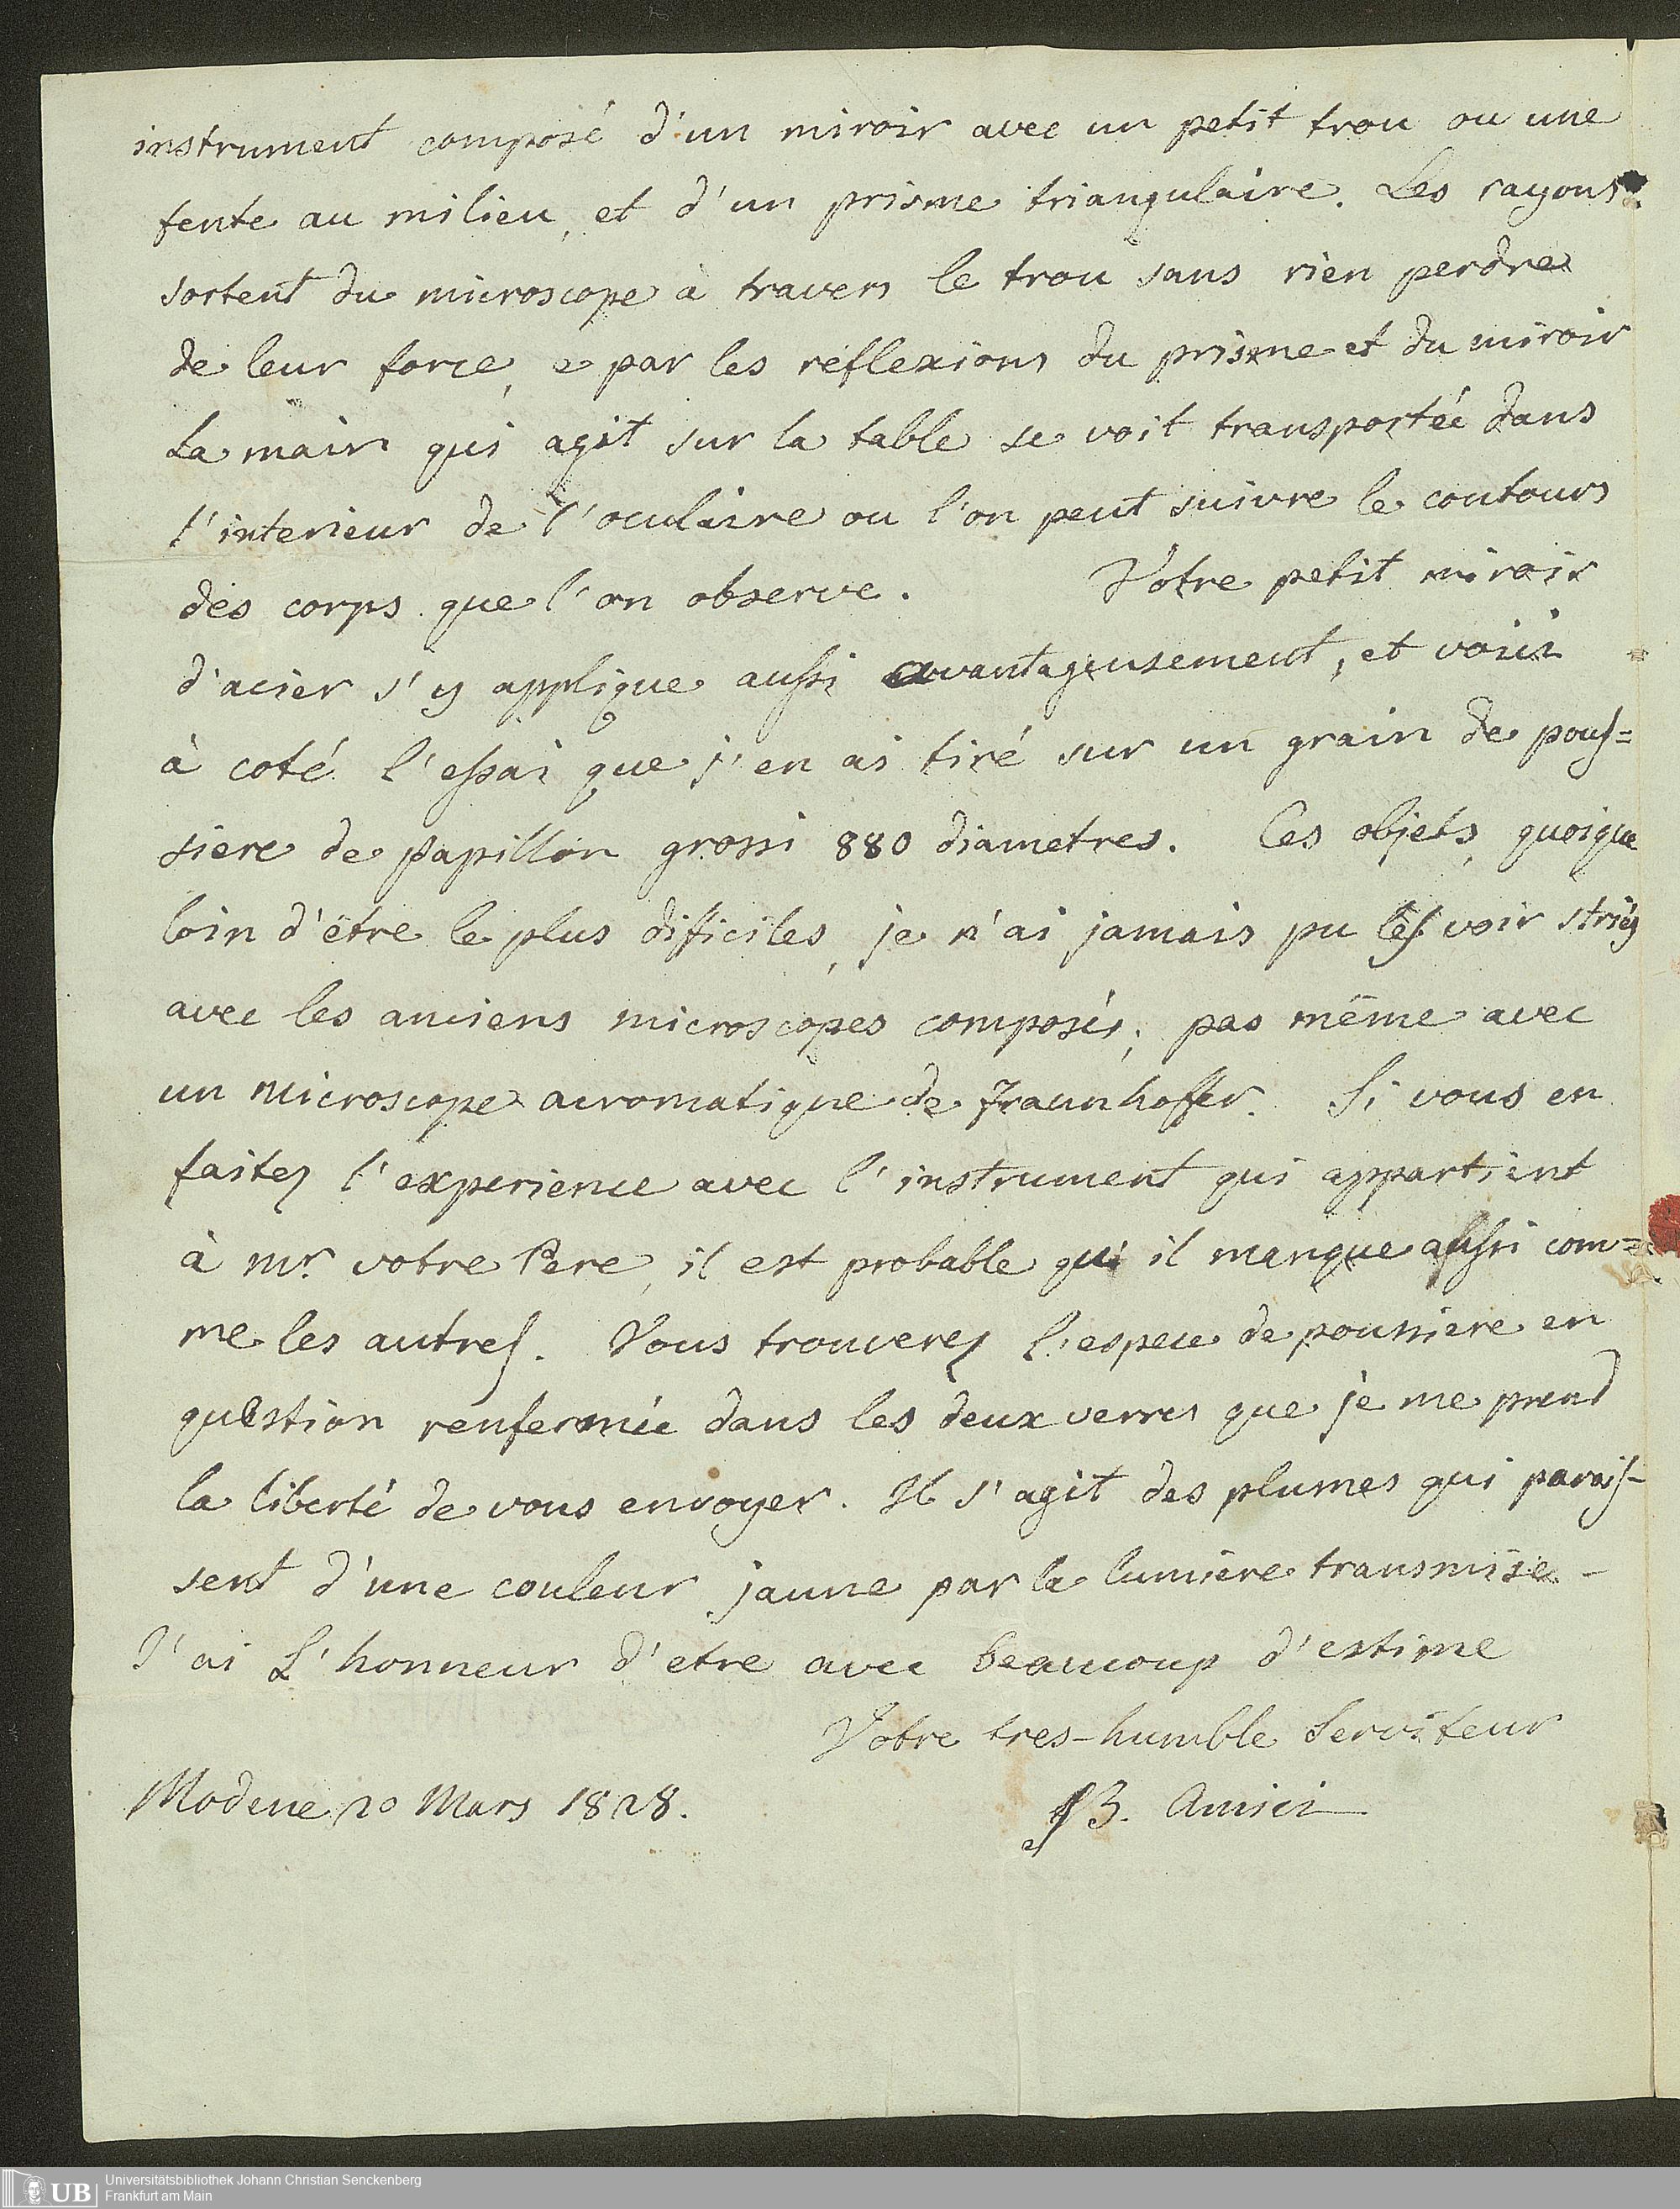 instrument composé d'un miroir avec un petit trou ou une
fente au milieu, et d'un prisme triangulaire. Les rayons
sortent du microscope à travers le trou sans rien perdre
de leur force, e par les reflexions du prisme et du miroir
La main qui agit sur la table se voit transportée dans
l'interieur de l'oculaire ou l'on peut suivre le contours
des corps que l'on observe. Votre petit miroir
d'acier s'y applique aussi avantageusement, et voici
à coté l'essai que j'en ai tiré sur un grain de pous=
siere de papillon grossi 880 diametres. Ces objets, quoique
loin d'être le plus difficiles, je n'ai jamais pu les voir striés
avec les anciens microscopes composés, pas même avec
un microscope acromatique de Fraunhoffer. Si vous en
faites l'experience avec l'instrument qui appartient
à Mr. votre Pere, il est probable qu'il manque aussi com=
me les autres. Vous trouverez l'espece de poussiere en
question renfermée dans les deux verres que je me prend
la liberté de vous envoyer. Il s'agit des plumes qui parois-
sent d'une couleur jaune par la lumiere transmise -
J'ai L'honneur d'etre avec beaucoup d'estime
Votre tres-humble Serviteur
Modene 20 Mars 1828. JB. Amici
UB Universitätsbibliothek Johann Christian Senckenberg
Frankfurt am Main